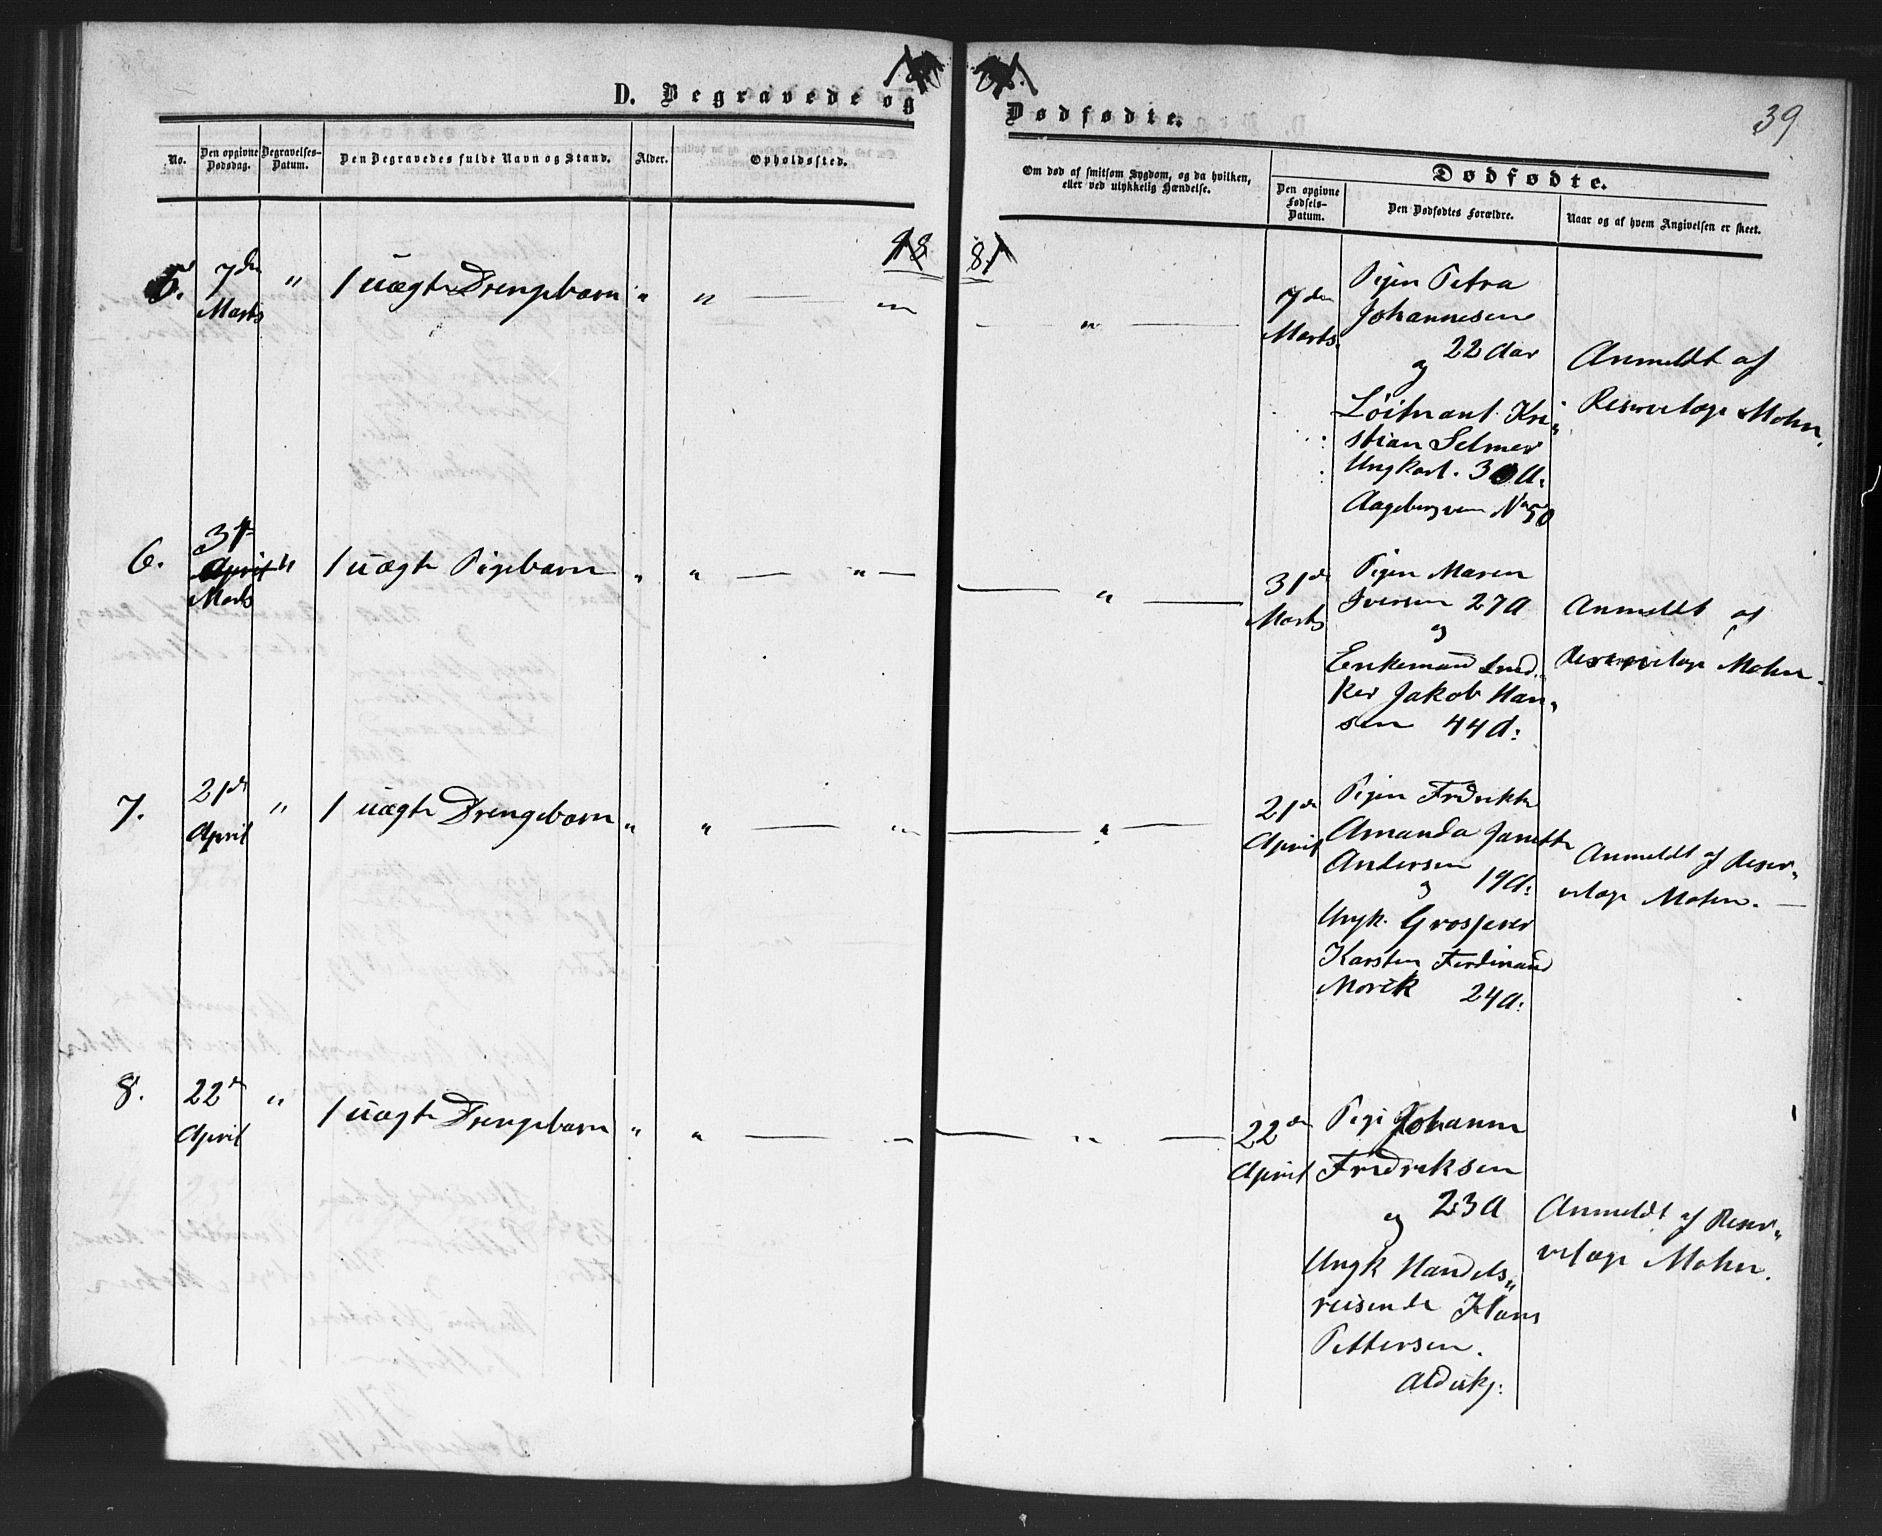 D. Begravede og
Dødfødte.
39
No.
Den opgivne Dødsdag.
Begravelses-Datum.
Den Begravedes fulde Navn og Stand.
Alder.
Opholdssted.
Om død af smitsom Sygdom, og da hvilken,
eller ved ulykkelig Hændelse.
Dødfødte.
Den opgivne Fødsels-Datum.
Den Dødfødtes Forældre.
Naar og af hvem Angivelsen er skeet.
18 81
5.
7de
Marts
"
1 uægte Drengebarn
"
"
"
7de
Marts.
Pigen Petra
Johannesen
22 Aar
og
Løitnant Kri-
stian Selmer
Ungkarl. 30 A:
Aagebergveien No 50
Anmeldt af
Reservelæge Mohn.
6.
31te
April
Marts
"
1 uægte Pigebarn
"
"
"
"
31de
Marts
Pigen Maren
Iversen 27 A
og
Enkemand Sned-
ker Jakob Han-
sen 44 A:
Anmeldt af
Reservelæge Mohn.
7.
21de
April
"
1 uægte Drengebarn
"
"
"
21de
April
Pigen Fredrikke
Amanda Janette
Andersen
og 19 A:
Ungk. Grosserer
Karsten Ferdinand
Morek 24 A:
Anmeldt af Reser-
velæge Mohn.
8.
22de
April
"
1 uægte Drengebarn
"
"
"
22de
April
Pige Johanne
Fredriksen
og 23 A
Ungk Handels-
reisende Hans
Pettersen.
Anmeldt af Reser-
velæge Mohn.